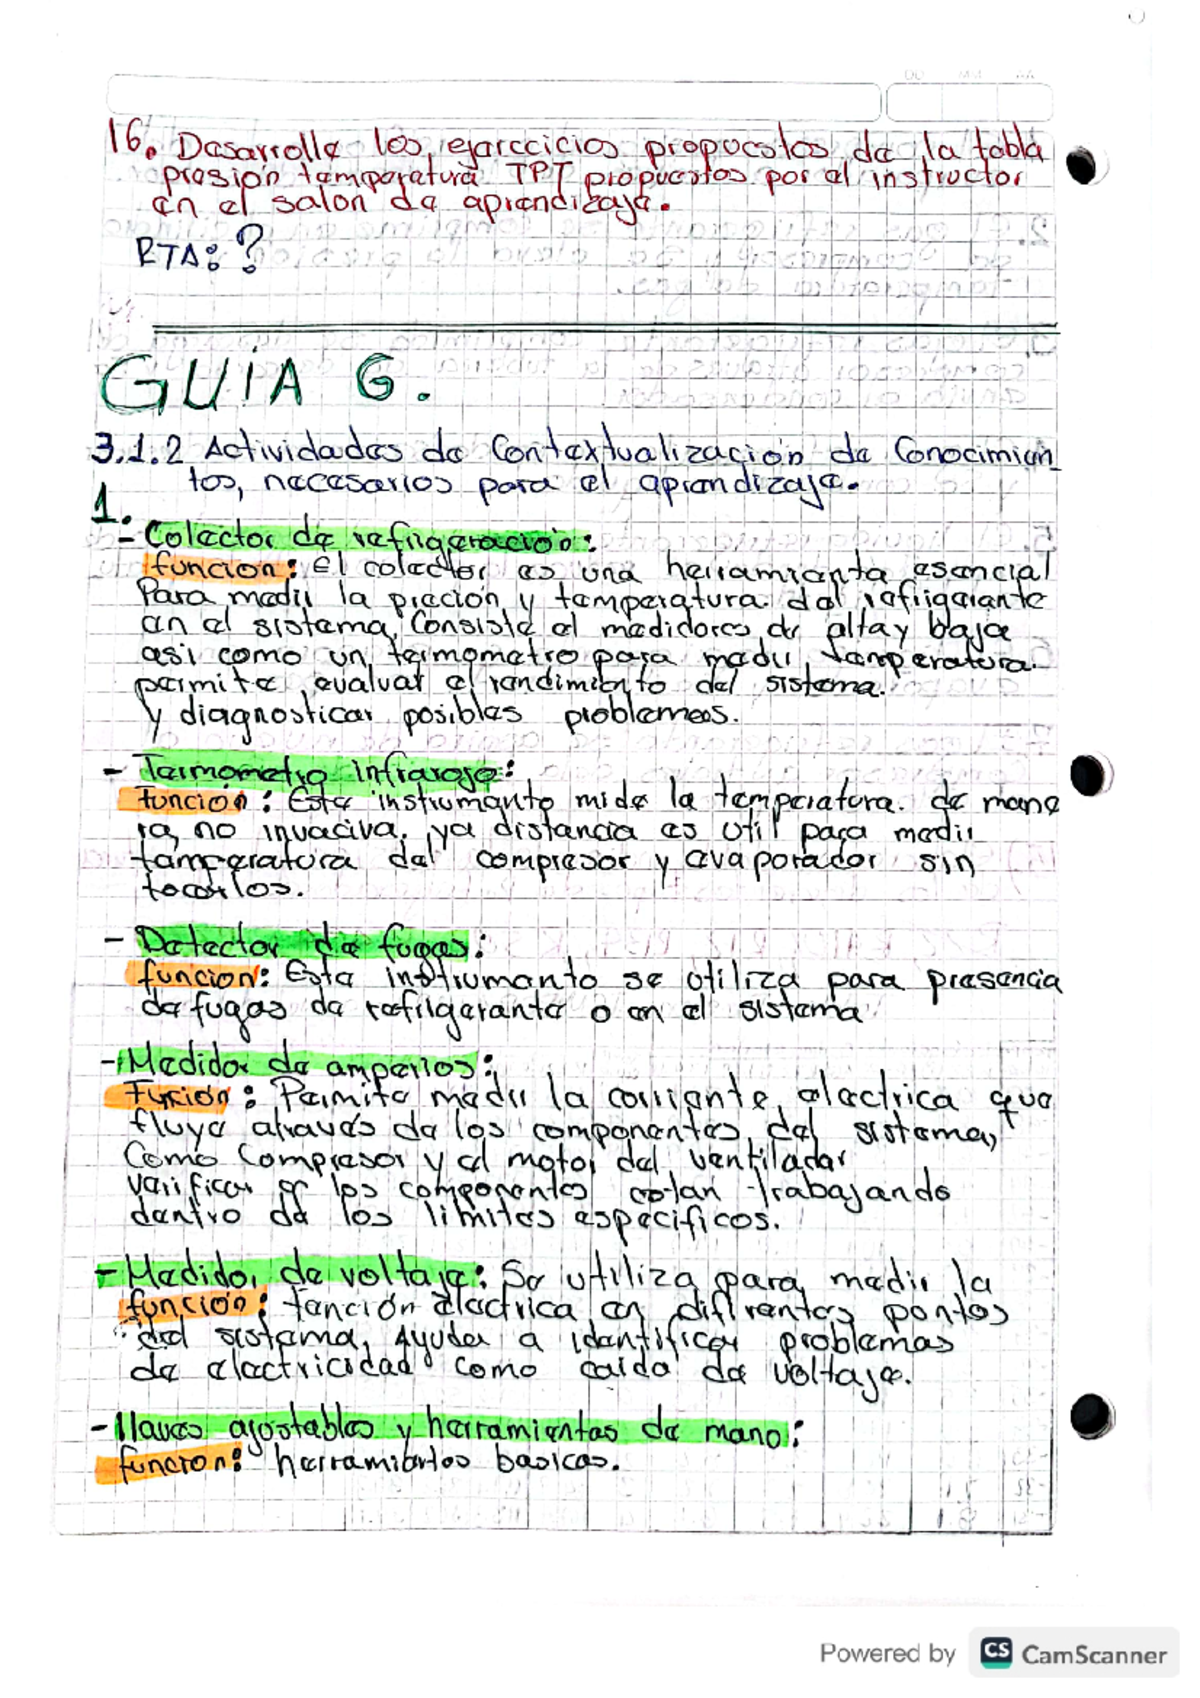 DD MM AA
16. Desarrolle los ejerccicios propuestos de la tabla
presión temperatura TPT propuestos por el instructor
en el salon de aprendizaje.
RTA: ?
GUIA 6.
3.1.2 Actividades de Contextualización de Conocimien
tos, necesarios para el aprendizaje.
1.
- Colector de refrigeración:
funcion: El colector es una herramienta esencial
Para medir la preción y temperatura del refrigerante
en el sistema, Consiste el medidores de alta y baja
asi como un termometro para medir temperatura.
permite evaluar el rendimiento del sistema.
y diagnosticar posibles problemas.
- Termometro infrarojo:
Función: Este instrumento mide la temperatura. de mane
ra no invaciva. ya distancia es util para medir
temperatura del compresor y evaporador sin
tocarlos.
- Detector de fugas:
funcion: Este instrumento se utiliza para presencia
de fugas de refrigerante o en el sistema
- Medidor de amperios:
Fución: Permite medir la corriente electrica que
fluye através de los componentes del sistema,
Como Compresor y el motor del ventilador
verificar si los componentes estan trabajando
dentro de los limites especificos.
- Medidor de voltaje: Se utiliza para medir la
función: tención electrica en difirentes pontos
del sistema, Ayuder a identificar problemas
de electricidad como caida de voltaje.
- llaves ajostables y herramientas de mano:
funcion: herramientos basicas.
Powered by CS CamScanner